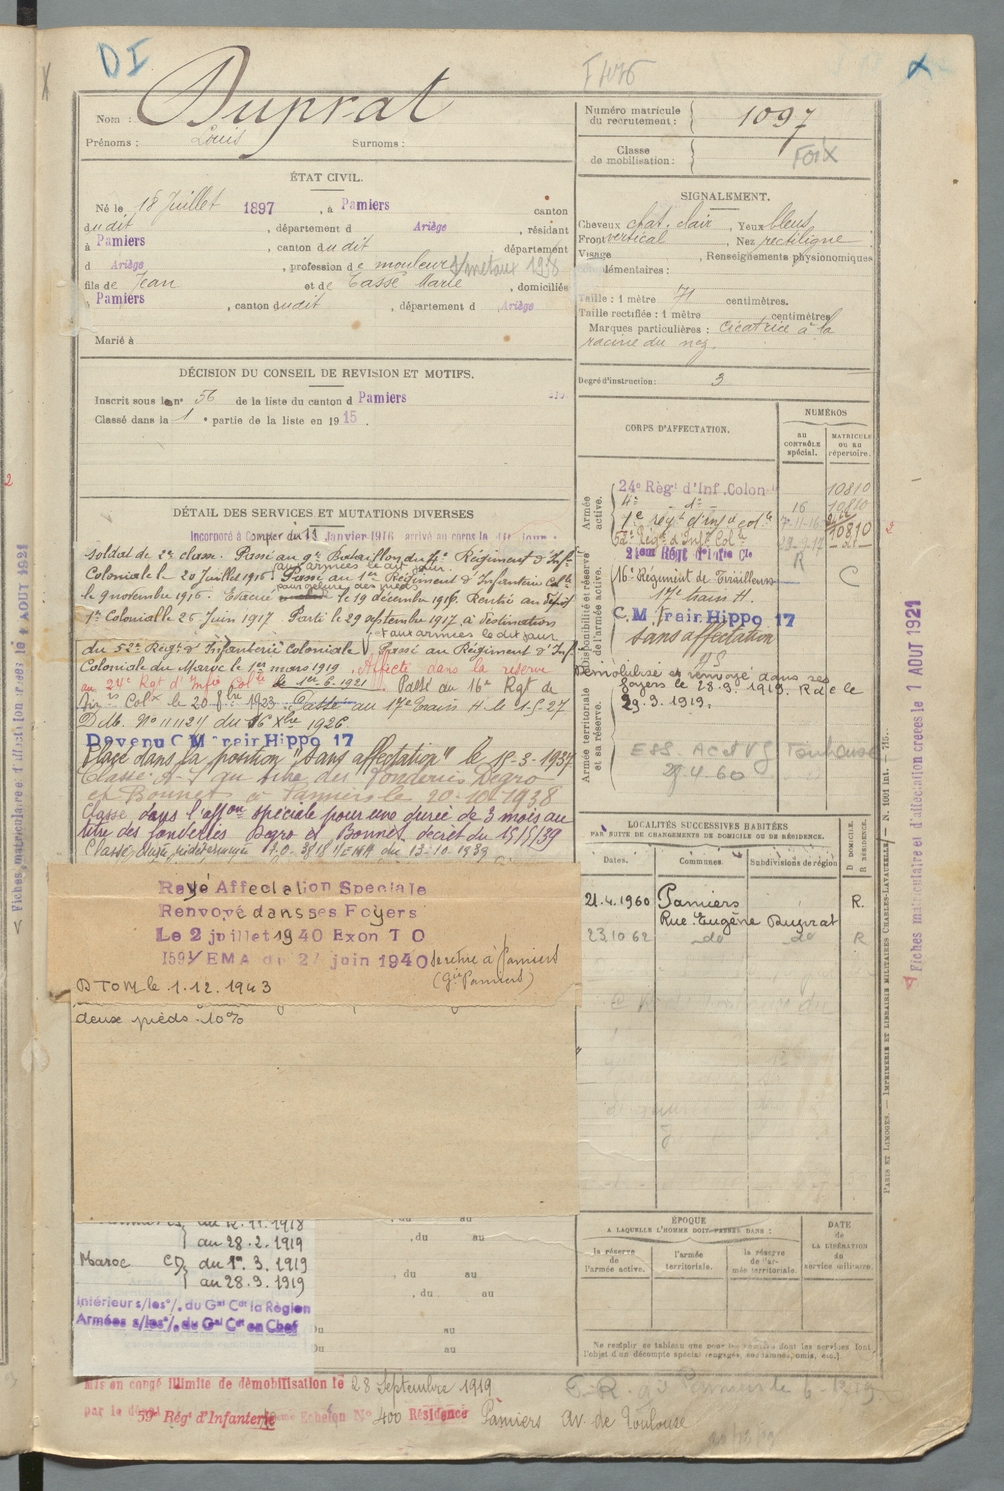 DI
Nom : Duprat
Prénoms : Louis Surnoms :
Numéro matricule du recrutement : 1097
Classe de mobilisation : FOIX
ÉTAT CIVIL.
Né le 18 Juillet 1897, à Pamiers canton
dudit, département d Ariège, résidant
à Pamiers, canton dudit département
d Ariège, profession de mouleur s/métaux 1938
fils de Jean et de Tassé Marie, domiciliés
à Pamiers, canton dudit, département d Ariège
Marié à
SIGNALEMENT.
Cheveux chat. clair, Yeux bleus
Front vertical, Nez rectiligne
Visage , Renseignements physionomiques
lémentaires :
Taille : 1 mètre 71 centimètres.
Taille rectifiée : 1 mètre centimètres
Marques particulières : Cicatrice à la
racine du nez.
Degré d'instruction : 3
DÉCISION DU CONSEIL DE REVISION ET MOTIFS.
Inscrit sous le n° 56 de la liste du canton d Pamiers
Classé dans la 1e partie de la liste en 1915.
DÉTAIL DES SERVICES ET MUTATIONS DIVERSES
Incorporé à compter du 11 Janvier 1916 arrivé au corps le dit jour
soldat de 2e classe. Passé au 9e Bataillon du 7e Régiment d'Inf.
aux armées le dit jour.
Coloniale le 20 Juillet 1916. Passé au 1er Régiment d'Infanterie Colle
pour gelure des pieds
le 9 novembre 1916. Evacué le 19 décembre 1916. Rentré au Dépôt
1er Colonial le 26 Juin 1917. Parti le 29 septembre 1917 à destination
aux armées le dit jour
du 52e Régt d'Infanterie Coloniale Passé au Régiment d'Inf.
Coloniale du Maroc le 1er mars 1919. Affecté dans la réserve
au 24e Rgt d'Infie Colle le 1er-6-1921. Passé au 16e Rgt de
Tirs Colx le 20 8bre 1923 Passé au 17e Train H. le 1-5-27
D.M. No 11112/1 du 16 Xbre 1926
Devenu C M Train Hippo 17
Placé dans la position "sans affectation" le 15-3-1937
Classé A-S au titre des fonderies Degro
et Bonnet à Pamiers le 20-10-1938
Classé dans l'affon spéciale pour une durée de 3 mois au
titre des fonderies Degro et Bonnet décret du 15/5/39
Rayé Affectation Speciale
Renvoyé dans ses Foyers
Le 2 juillet 1940 Exon T O
1591/EMA du 24 juin 1940 se retire à Pamiers
(Gie Pamiers)
DTOM le 1.12.1943
deux pieds -10%
au 12.11.1918
au 28.2.1919
Maroc CD du 1er.3.1919
au 28.9.1919
Intérieur s/les °/. du Gal Ct la Région
Armées s/les °/. du Gal Ct en Chef
,du au
,du au
,du au
, du au
Du au
Du au
CORPS D'AFFECTATION.
NUMÉROS
au contrôle spécial.
matricule ou au répertoire.
Armée active.
24e Régt d'Inf. Colon 10810
4e d° 16 10810
1er régt d'inf colle 9-11-16 10810
52e Régt d'Infie Colle 29-9-17
Disponibilité et réserve de l'armée active.
21em Régt d'Infie Cle R
16e Régiment de Tirailleurs C
17e train H.
C. M. Train Hippo 17
sans affectation
AS
Armée territoriale et sa réserve.
Démobilisé et renvoyé dans ses
foyers le 28.9.1919. Rdc le
29.9.1919.
ESS. AC et VG Toulouse
29.4.60
LOCALITÉS SUCCESSIVES HABITÉES
PAR SUITE DE CHANGEMENTS DE DOMICILE OU DE RÉSIDENCE.
Dates. Communes. Subdivisions de région D DOMICILE. R RÉSIDENCE.
21.4.1960 Pamiers R.
Rue Eugène Duprat
23.10 62 do do R
ÉPOQUE
A LAQUELLE L'HOMME DOIT PASSER DANS :
la réserve de l'armée active.
l'armée territoriale.
la réserve de l'armée territoriale.
DATE de LA LIBÉRATION du service militaire.
Ne remplir ce tableau que pour les hommes dont les services font
l'objet d'un décompte spécial (engagés, condamnés, omis, etc.).
Mis en congé illimité de démobilisation le 28 Septembre 1919
par le dépôt 59e Régt d'Infanterie Echelon N° 400 Résidence Pamiers av. de Toulouse
Fiches matriculaire et d'affectation créées le 1 AOUT 1921
PARIS ET LIMOGES. — IMPRIMERIE ET LIBRAIRIE MILITAIRES CHARLES-LAVAUZELLE